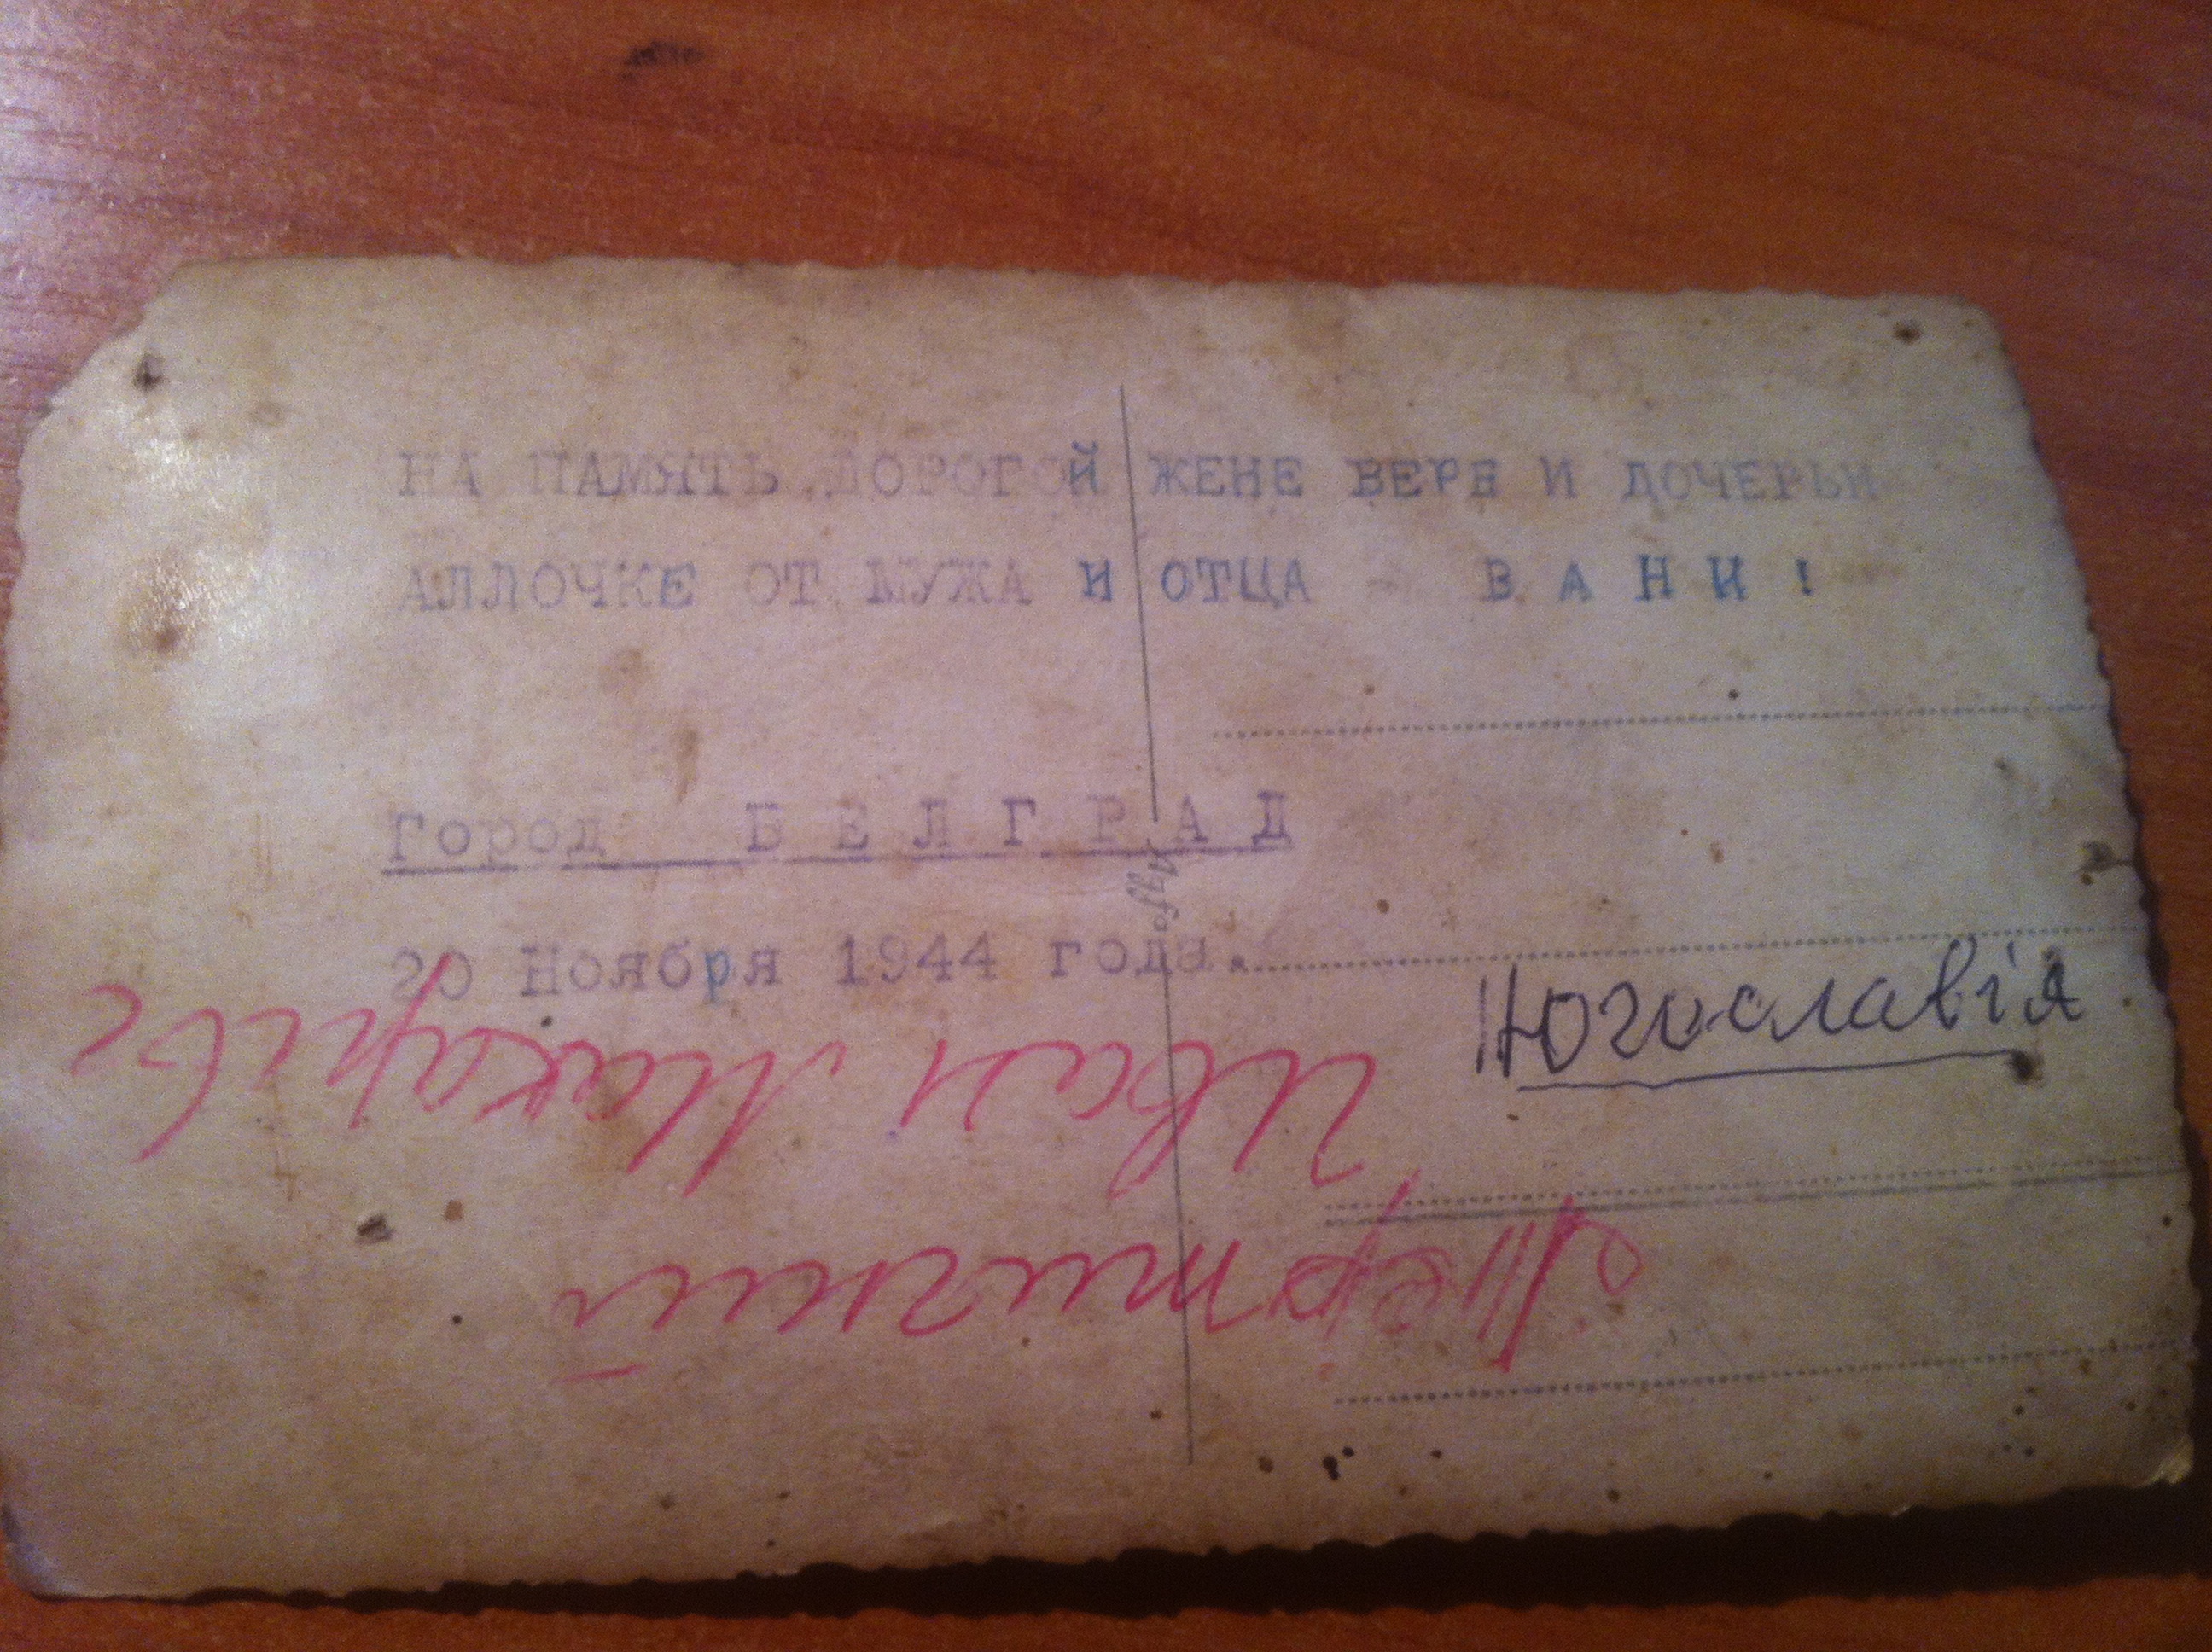 НА ПАМЯТЬ ДОРОГОЙ ЖЕНЕ ВЕРЕ И ДОЧЕРЬИ
АЛЛОЧКЕ ОТ МУЖА И ОТЦА - В А Н И !
Город Б Е Л Г Р А Д
20 Ноября 1944 года.
Югославія
Иван